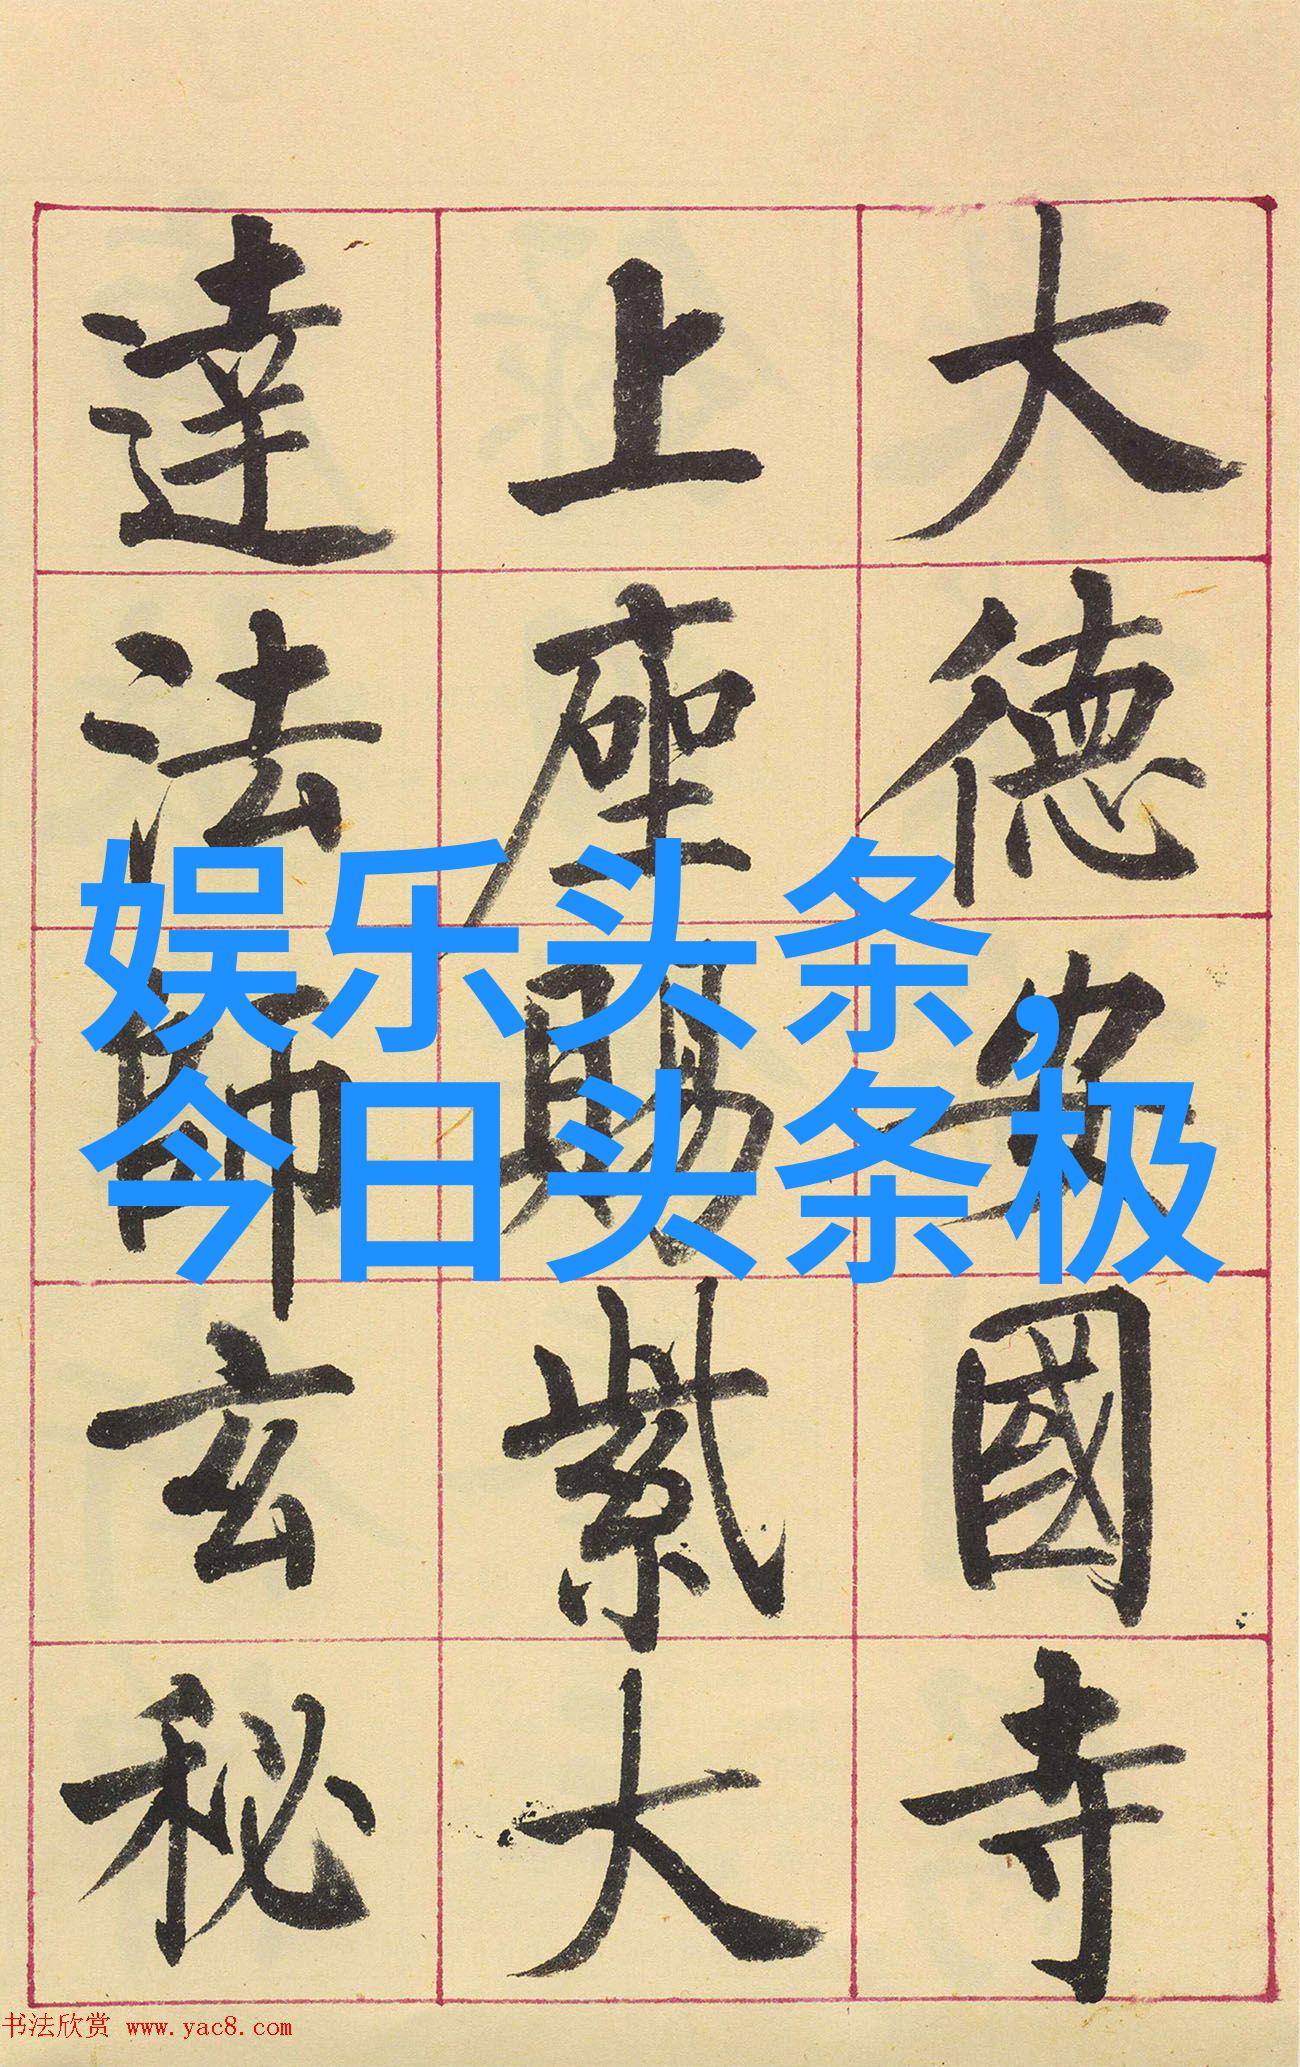 大德安國寺
上座賜紫大
達法師玄秘
娱乐头条,
今日头条极
书法欣赏 www.yac8.com